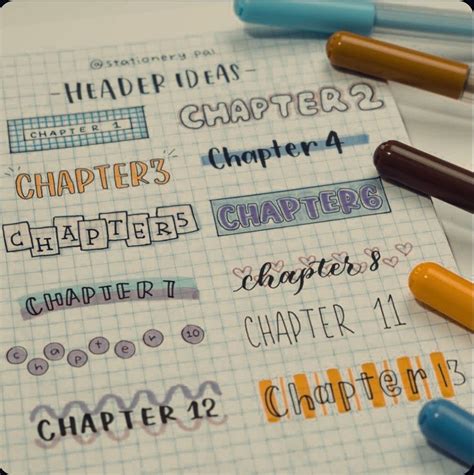 @stationery pal
-HEADER IDEAS-
CHAPTER 1
CHAPTER 2
CHAPTER3
Chapter 4
CHAPTER5
CHAPTER6
CHAPTER 7
chapter 8
chapter 10
CHAPTER 11
CHAPTER 12
Chapter 13